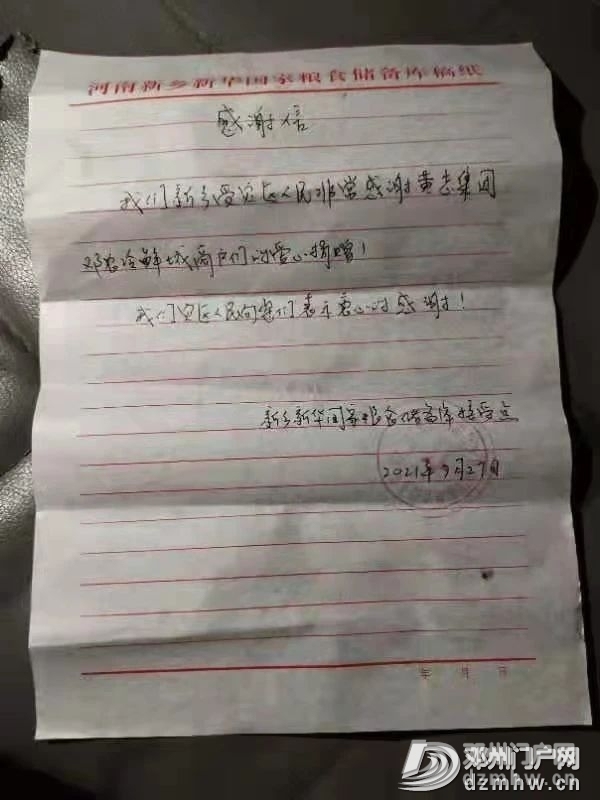 河南新乡新华国家粮食储备库稿纸
感谢信
我们新乡受灾区人民非常感谢黄志集团
邓农冷鲜城商户们的爱心捐赠！
我们灾区人民向您们表示衷心的感谢！
新乡新华国家粮食储备库接受点
2021年9月27日
年 月 日
邓州门户网
dzmhw.cn